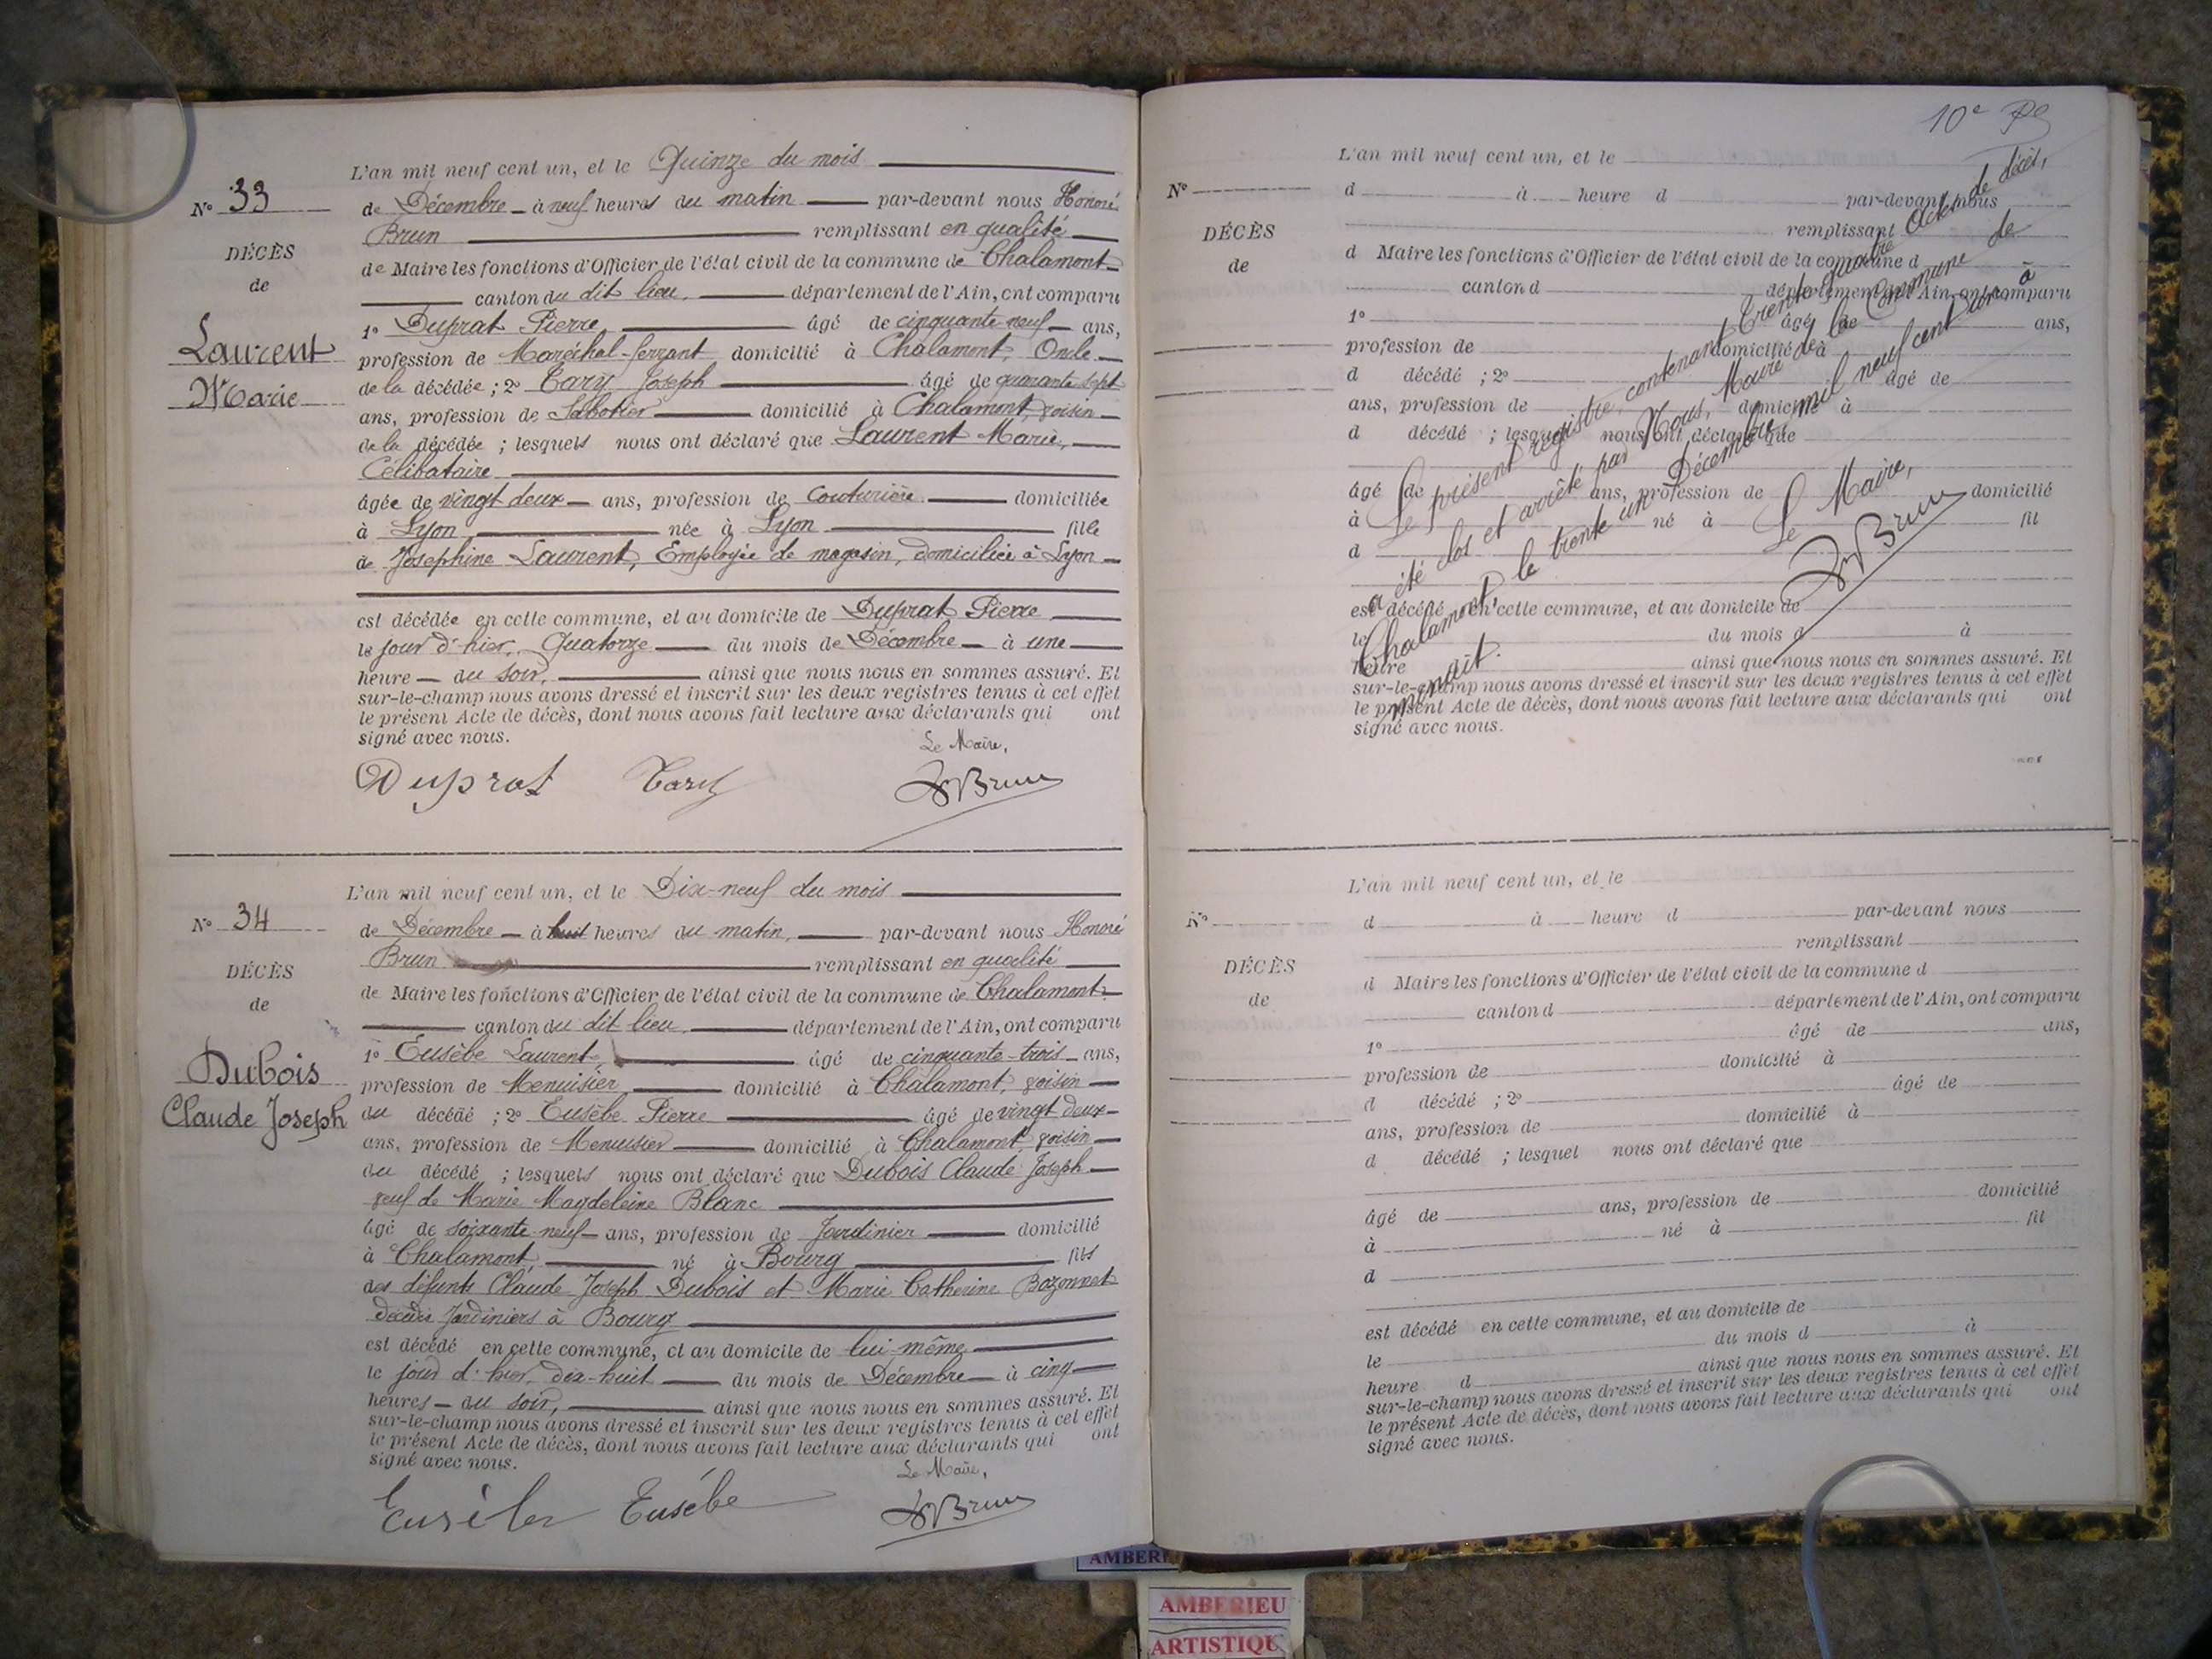 L'an mil neuf cent un, et le Quinze du mois
N° 33
de Décembre à neuf heures du matin par-devant nous Honoré
Brun remplissant en qualité
DÉCÈS
de Maire les fonctions d'Officier de l'état civil de la commune de Chalamont
de
canton du dit lieu, département de l'Ain, ont comparu
1° Duprat Pierre âgé de cinquante neuf ans,
Laurent
profession de Maréchal-ferrant domicilié à Chalamont, Oncle
Marie
de la décédée ; 2° Tary Joseph âgé de quarante sept
ans, profession de Sabotier domicilié à Chalamont, voisin
de la décédée ; lesquels nous ont déclaré que Laurent Marie,
Célibataire
âgée de vingt deux ans, profession de Couturière domiciliée
à Lyon née à Lyon fille
de Joséphine Laurent, Employée de magasin, domiciliée à Lyon
est décédée en cette commune, et au domicile de Duprat Pierre
le jour d'hier, Quatorze du mois de Décembre à une
heure du soir, ainsi que nous nous en sommes assuré. Et
sur-le-champ nous avons dressé et inscrit sur les deux registres tenus à cet effet
le présent Acte de décès, dont nous avons fait lecture aux déclarants qui ont
signé avec nous.
Le Maire,
Duprat Tary HBrun
L'an mil neuf cent un, et le Dix-neuf du mois
N° 34
de Décembre à huit heures du matin, par-devant nous Honoré
Brun remplissant en qualité
DÉCÈS
de Maire les fonctions d'Officier de l'état civil de la commune de Chalamont
de
canton du dit lieu, département de l'Ain, ont comparu
1° Eusèbe Laurent, âgé de cinquante-trois ans,
Dubois
profession de Menuisier domicilié à Chalamont, voisin
Claude Joseph
du décédé ; 2° Eusèbe Pierre âgé de vingt deux
ans, profession de Menuisier domicilié à Chalamont, voisin
du décédé ; lesquels nous ont déclaré que Dubois Claude Joseph
veuf de Marie Magdeleine Blanc
âgé de soixante neuf ans, profession de Jardinier domicilié
à Chalamont, né à Bourg fils
des défunts Claude Joseph Dubois et Marie Catherine Bozonnet
décédés Jardiniers à Bourg
est décédé en cette commune, et au domicile de lui-même
le jour d'hier, dix-huit du mois de Décembre à cinq
heures du soir, ainsi que nous nous en sommes assuré. Et
sur-le-champ nous avons dressé et inscrit sur les deux registres tenus à cet effet
le présent Acte de décès, dont nous avons fait lecture aux déclarants qui ont
signé avec nous.
Le Maire,
Eusèbe Eusébe HBrun
10e
L'an mil neuf cent un, et le
N°
d à heure d par-devant nous
remplissant
DÉCÈS
d Maire les fonctions d'Officier de l'état civil de la commune d
de
canton d département de l'Ain, ont comparu
1° âgé de ans,
profession de domicilié à
d décédé ; 2° âgé de
ans, profession de domicilié à
d décédé ; lesquel nous ont déclaré que
âgé de ans, profession de domicilié
à né à fil
d
est décédé en cette commune, et au domicile de
le du mois d à
heure ainsi que nous nous en sommes assuré. Et
sur-le-champ nous avons dressé et inscrit sur les deux registres tenus à cet effet
le présent Acte de décès, dont nous avons fait lecture aux déclarants qui ont
signé avec nous.
Le présent registre, contenant trente quatre Actes de décès,
a été clos et arrêté par Nous, Maire de la Commune de
Chalamont, le trente un Décembre mil neuf cent un à
minuit.
Le Maire,
HBrun
L'an mil neuf cent un, et le
N°
d à heure d par-devant nous
remplissant
DÉCÈS
d Maire les fonctions d'Officier de l'état civil de la commune d
de
canton d département de l'Ain, ont comparu
1° âgé de ans,
profession de domicilié à
d décédé ; 2° âgé de
ans, profession de domicilié à
d décédé ; lesquel nous ont déclaré que
âgé de ans, profession de domicilié
à né à fil
d
est décédé en cette commune, et au domicile de
le du mois d à
heure d ainsi que nous nous en sommes assuré. Et
sur-le-champ nous avons dressé et inscrit sur les deux registres tenus à cet effet
le présent Acte de décès, dont nous avons fait lecture aux déclarants qui ont
signé avec nous.
AMBERIEU
ARTISTIQU